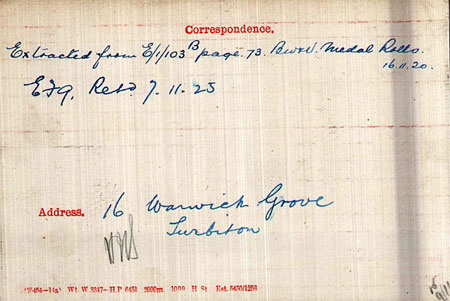 Correspondence.
Extracted from E/1/103 B page 73. BW&V. Medal Rolls.
16.11.20.
EF9. Retd 7.11.25
Address. 16 Warwick Grove
Surbiton
Wt. W 3347—H.P 6451 2000m. 10/19 H St. Est. 5400/1256